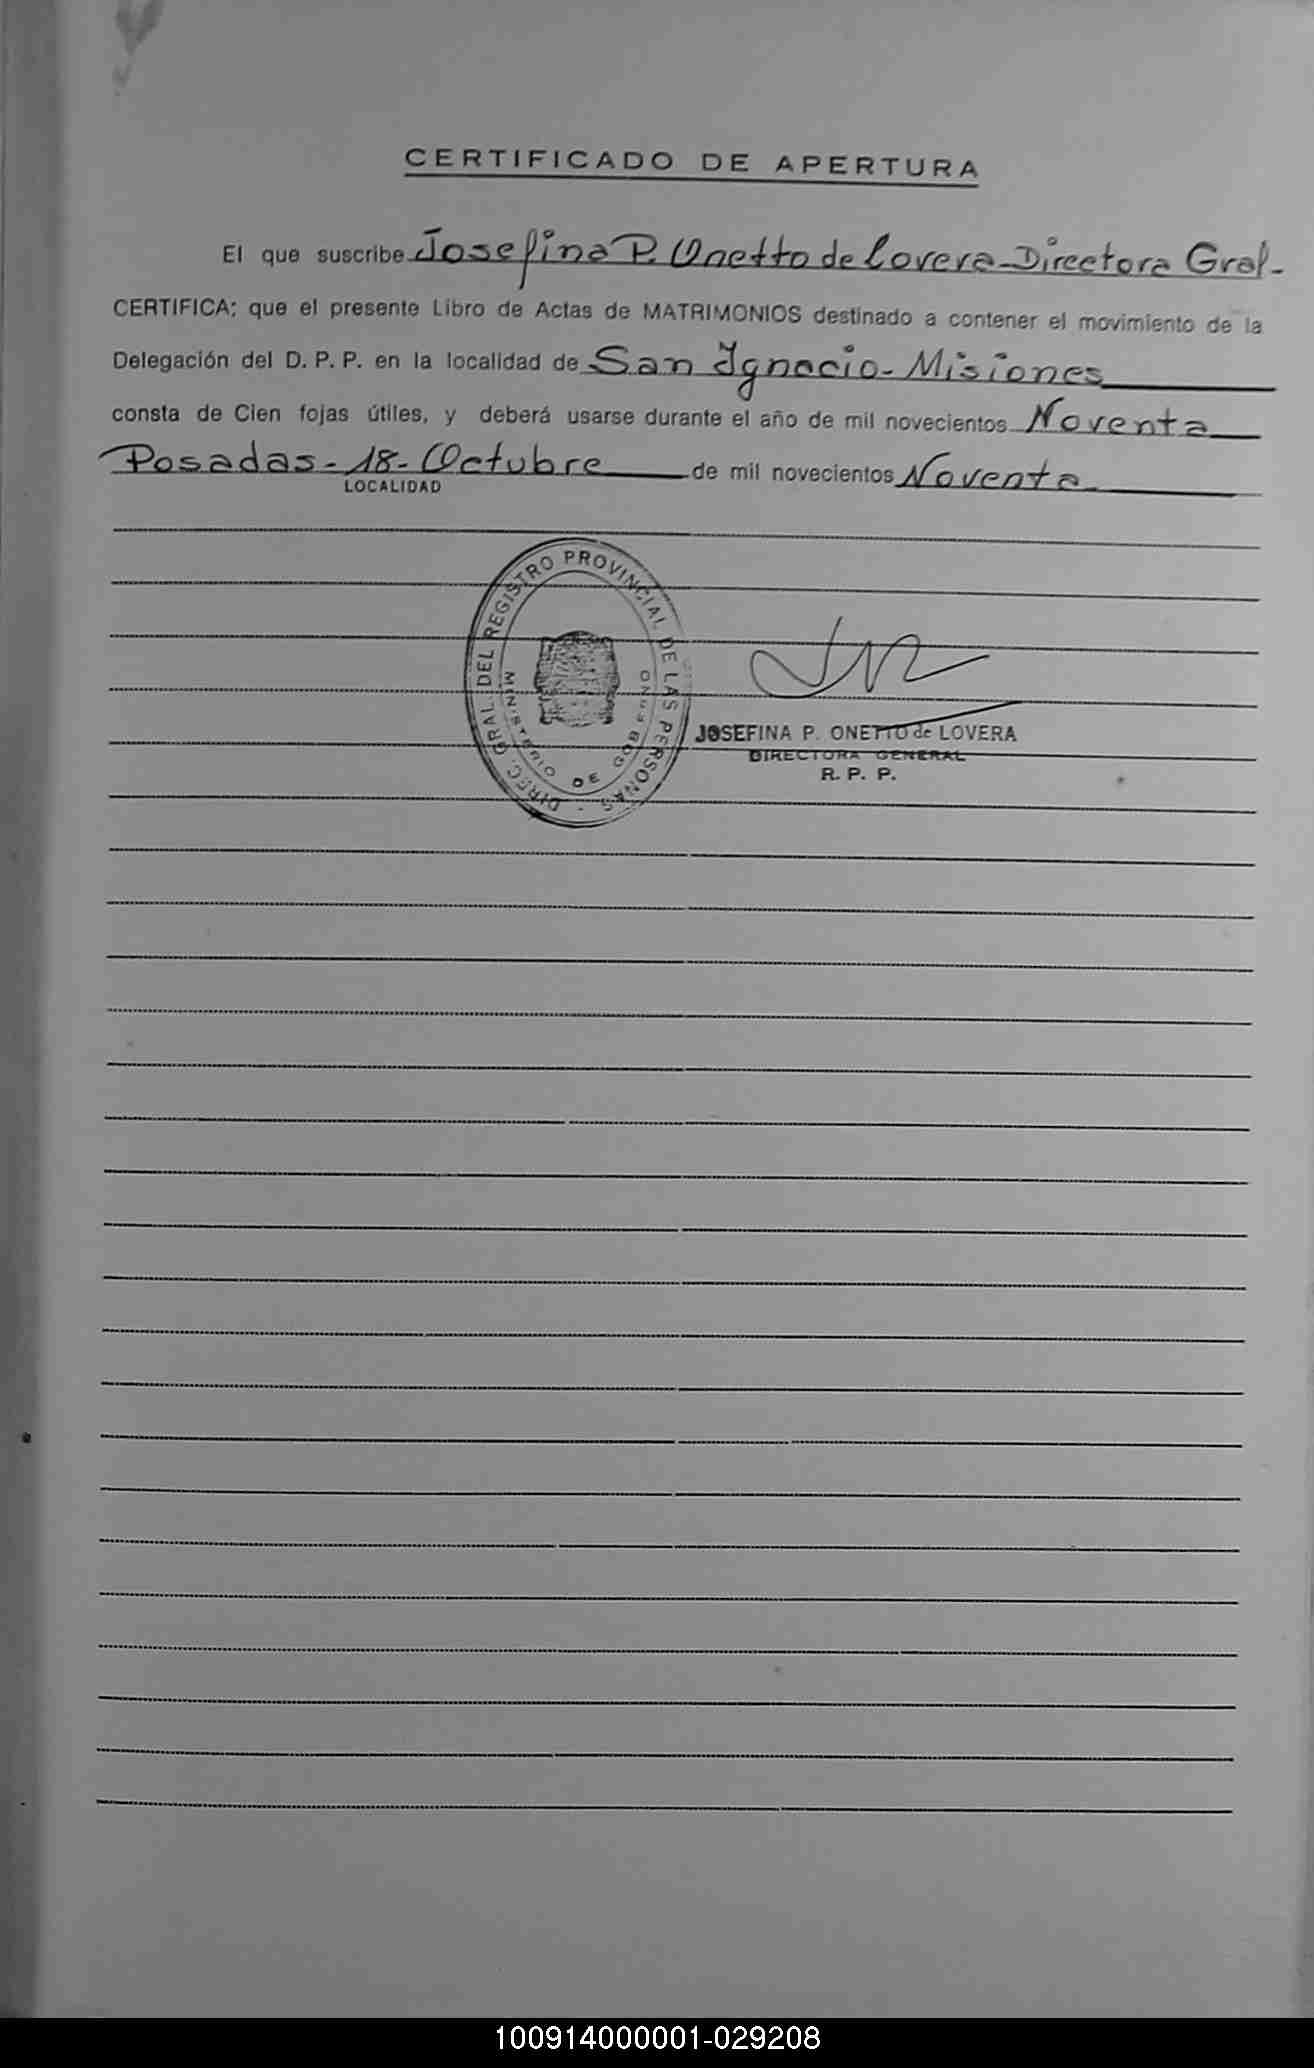 CERTIFICADO DE APERTURA
El que suscribe Josefina P. Onetto de Lovera - Directora Gral -
CERTIFICA; que el presente Libro de Actas de MATRIMONIOS destinado a contener el movimiento de la
Delegación del D. P. P. en la localidad de San Ignacio - Misiones
consta de Cien fojas útiles, y deberá usarse durante el año de mil novecientos Noventa
Posadas - 18 - Octubre de mil novecientos Noventa
LOCALIDAD
DIREC. GRAL. DEL REGISTRO PROVINCIAL DE LAS PERSONAS -
MINISTERIO DE GOBIERNO
JOSEFINA P. ONETTO de LOVERA
DIRECTORA GENERAL
R. P. P.
100914000001-029208